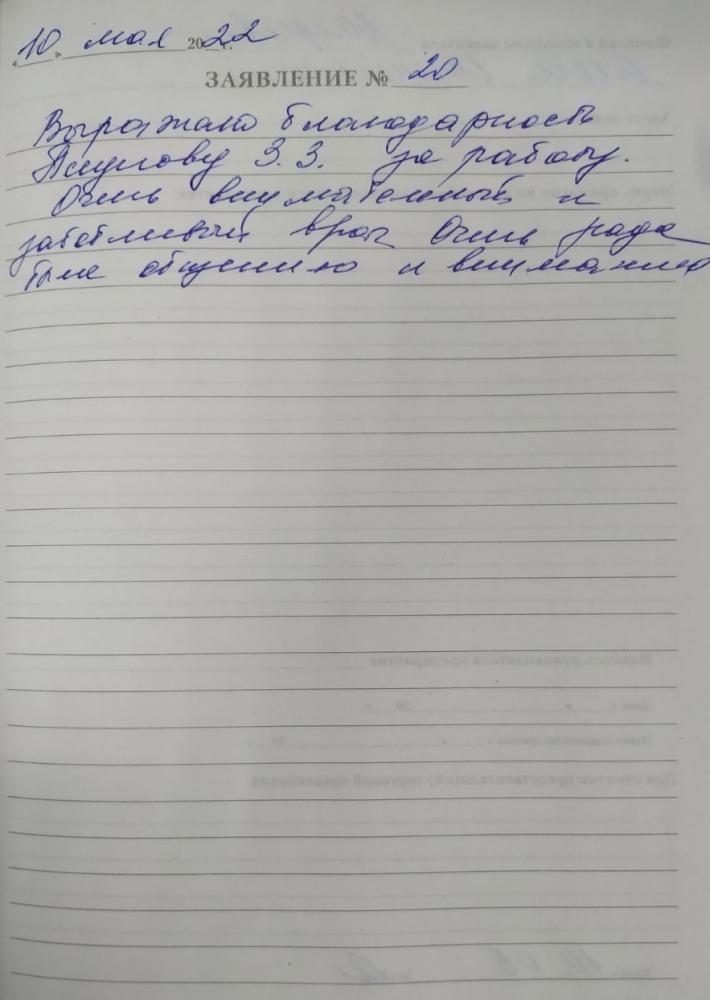 «10» мая 2022 г.
ЗАЯВЛЕНИЕ № 20
Выражаю благодарность
З.З. за работу.
Очень внимательный и
заботливый врач Очень рада
общению и вниманию